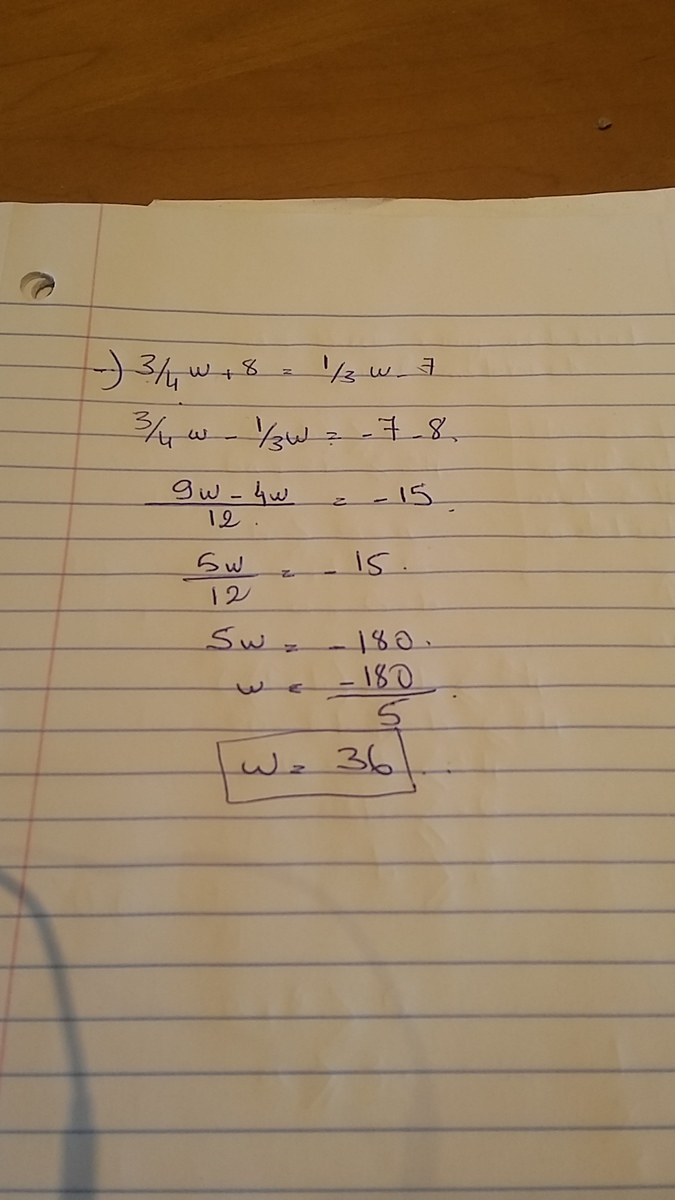 →) 3/4 w + 8 = 1/3 w - 7
3/4 w - 1/3 w = - 7 - 8.
9w - 4w / 12. = - 15.
5w / 12 = - 15.
5w = - 180.
w = - 180 / 5.
w = 36 ...